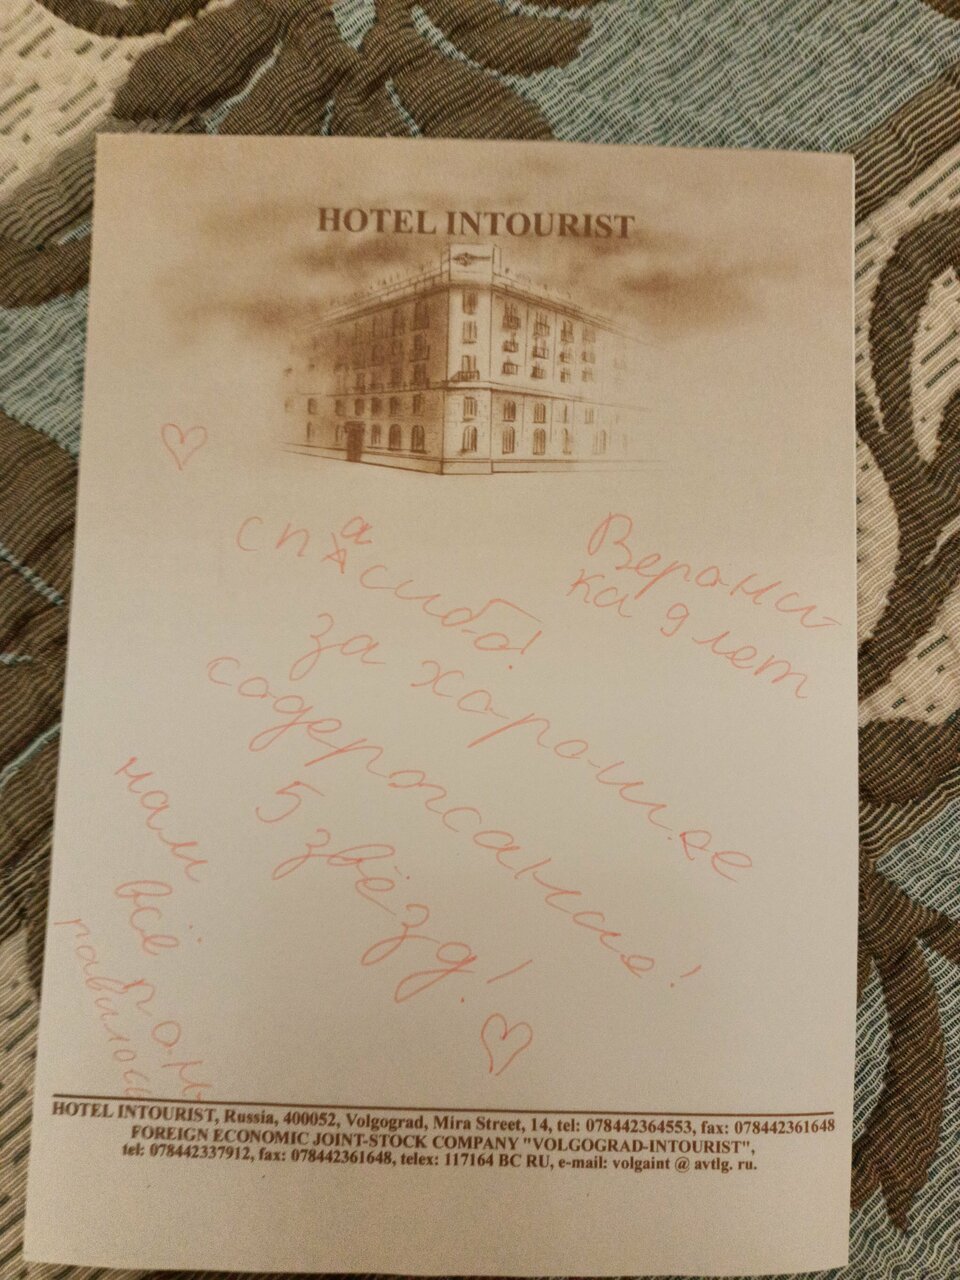 HOTEL INTOURIST
спасибо!
за харошее
содержание!
5 звёзд!
Верони-
ка 9 лет
нам
всё
пон-
равилось
HOTEL INTOURIST, Russia, 400052, Volgograd, Mira Street, 14, tel: 078442364553, fax: 078442361648
FOREIGN ECONOMIC JOINT-STOCK COMPANY "VOLGOGRAD-INTOURIST",
tel: 078442337912, fax: 078442361648, telex: 117164 BC RU, e-mail: volgaint @ avtlg. ru.